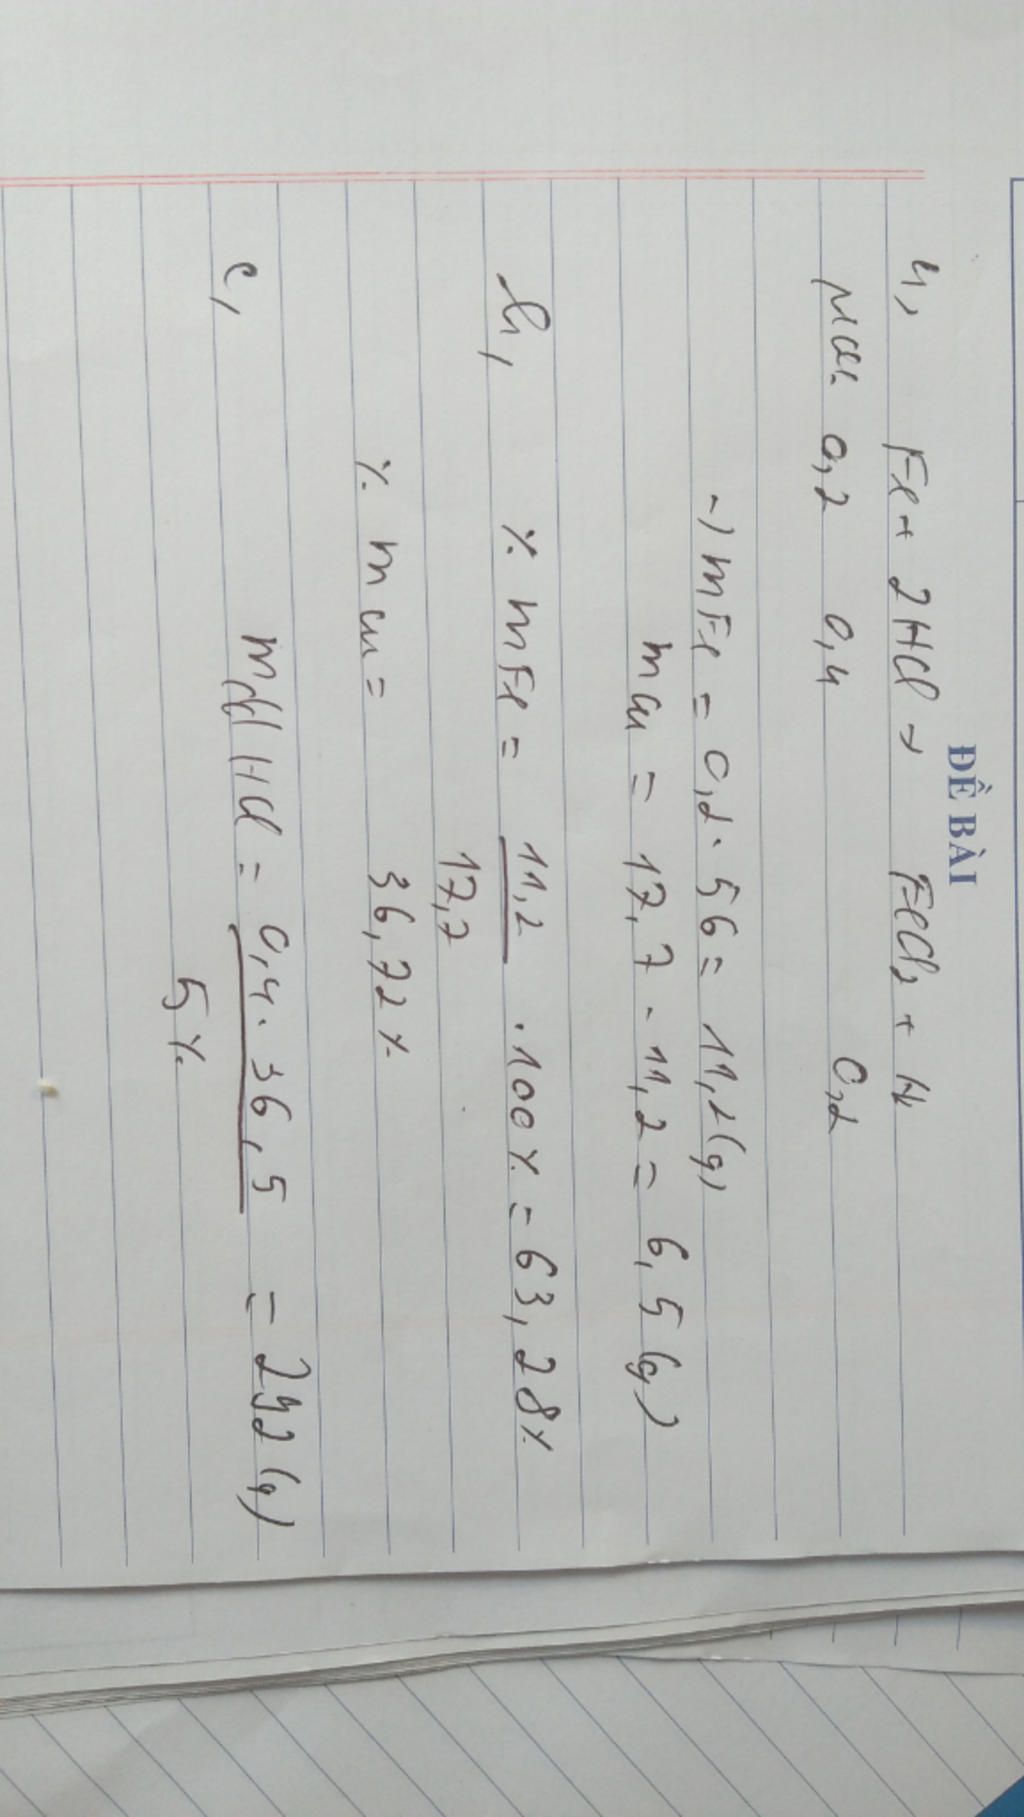 ĐỀ BÀI
4, Fe + 2HCl → FeCl2 + H2
0,2 0,4 0,2
→) mFe = 0,2 . 56 = 11,2 (g)
m cu = 17,7 - 11,2 = 6,5 (g)
b, % mFe = 11,2 . 100% = 63,28%
17,7
% m cu = 36,72%
c, mdd HCl = 0,4 . 36,5 = 292 (g)
5%